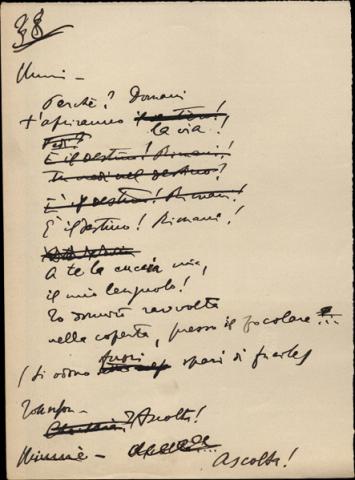 38
Minnie –
Perchè? Domani
t'apriranno il sentiero!
la via!
Vedi?
È il destino! Rimani!
È il destino! Rimani!
È il destino! Rimani!
A te la cuccia mia,
il mio lenzuolo!
Io dormirò ravvolta
nella coperta, presso il focolare!...
(Si odono fuori spari di fucile)
Johnson –
Ascolta!
Minnie –
Ascolta!